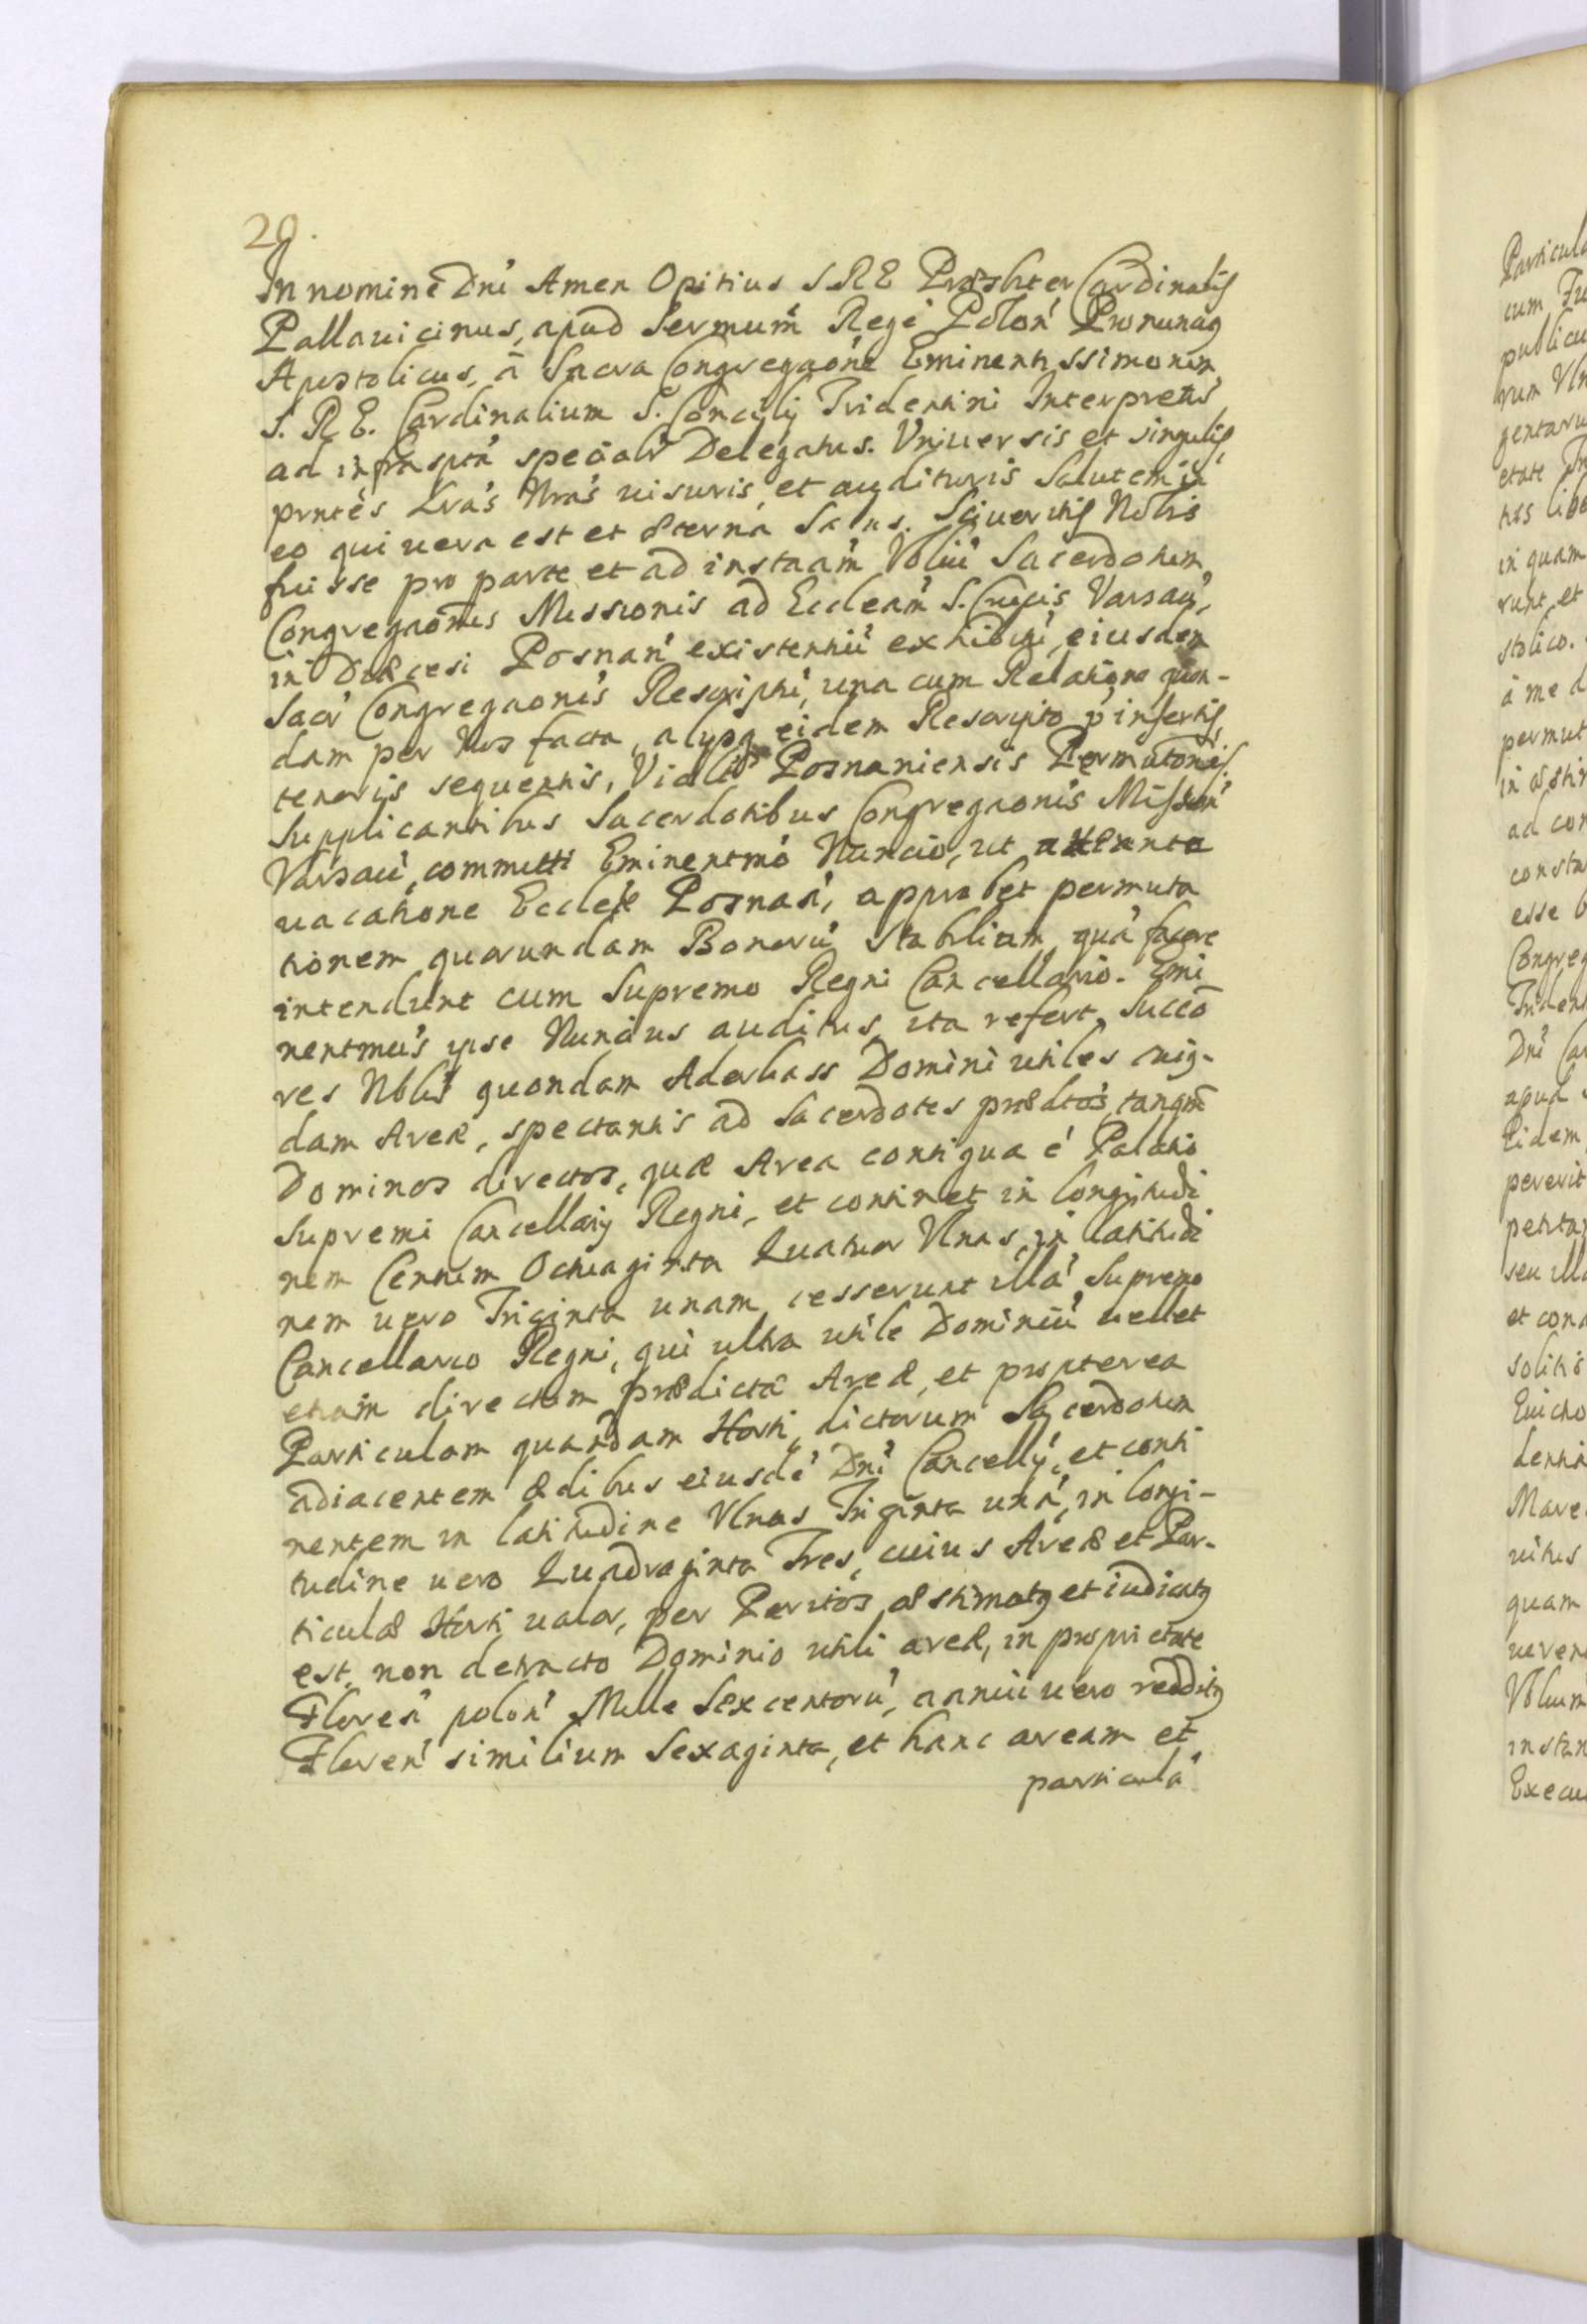 20.
In nomine Dni Amen Opitius S R E Præsbiter Cardinalis
Pallauicinus, apud Sermum Regē Polon Pronuncius
Apostolicus, à Sacra Congregaone Eminentissimorum
S. R. E. Cardinalium S. Concilij Tridentini Interpretū
ad infrasptā specialr Delegatus. Vniuersis et singulis
pntēs Lrās Nrās uisuris, et audituris Salutem in
eo qui uera est et æterna Salus. Sciueritis Nobis
fuisse pro parte et ad instaam Vbliū Sacerdotum
Congregaonis Missionis ad Eccleam S. Crucis Varsau,
in Diæcesi Posnan existentiū exhibiti, eiusdem
Sacr Congregaonis Rescripti, una cum Relatione quon-
dam per Nos facta, alysq eidem Rescripto insertis,
tenoris sequentis, Posnaniensis Permutonis.
Supplicantibus Sacerdotibus Congregaonis Mission
Varsau, committi Eminentmo Nuncio, ut attenta
uacatione Eccleæ Posnan, approbet permuta
tionem quarundam Bonorū Stabilium, quā facere
intendunt cum Supremo Regni Cancellario. Emi
nentmus ipse Nuncius auditus, ita refert. Succo
res Nblis quondam Aderkass Domini utiles cuiq-
dam Areæ, spectantis ad Sacerdotes prædtos, tanqm
Dominos directos, quæ Area contigua ē Palatio
Supremi Cancellarij Regni, et continet in longitudi
nem Centum Octuaginta Quatuor Vlnas, in latitudi
nem uero Triginta unam, cesserunt illā Supremo
Cancellario Regni, qui ultra utile Dominiū uellet
etiam directum prædictæ Areæ, et propterea
Particulam quandam Horti, dictorum Sacerdotum
adiacentem ædibus eiusdē Dni Cancellrij, et conti
nentem in latitudine Vlnas Triginta unā, in longi-
tudine uero Quadraginta Tres, cuius Areæ et Par-
ticulæ Horti ualor, per Peritos æstimatq et iudicatq
est, non detracto Dominio utili areæ, in proprietate
Floren polon Mille Sexcentorū, annui uero redditq
Floren similium Sexaginta, et hanc aream et
particulā